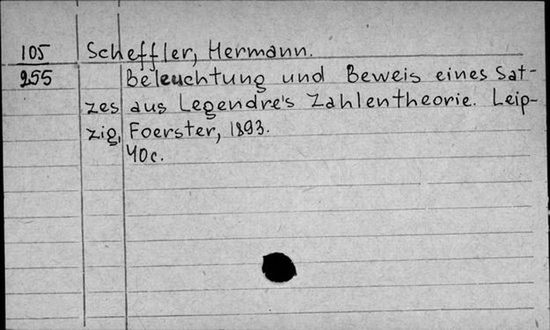 105 Scheffler, Hermann.
255 Beleuchtung und Beweis eines Sat-
zes aus Legendre's Zahlentheorie. Leip-
zig, Foerster, 1893.
40c.